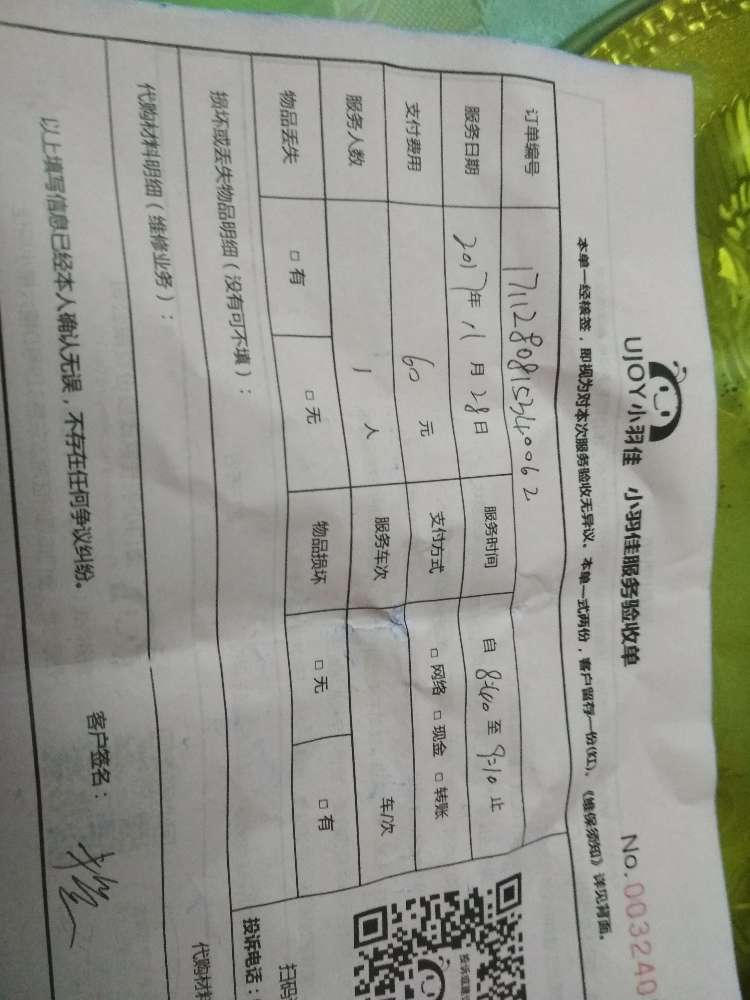 UJOY小羽佳 小羽佳服务验收单
No.003240
本单一经核签，即视为对本次服务验收无异议。本单一式两份，客户留存一份(红)、《维保须知》详见背面。
订单编号 1711280815340062
服务日期 2017年 11月 28日 服务时间 自 8:40 至 9:10 止
支付费用 60 元 支付方式 □ 网络 □ 现金 □ 转账
服务人数 1 人 服务车次 车/次
物品丢失 □ 有 □ 无 物品损坏 □ 无 □ 有
损坏或丢失物品明细（没有可不填）：
代购材料明细（维修业务）：
代购材料
以上填写信息已经本人确认无误，不存在任何争议纠纷。
客户签名：
投诉或建
扫码
投诉电话：